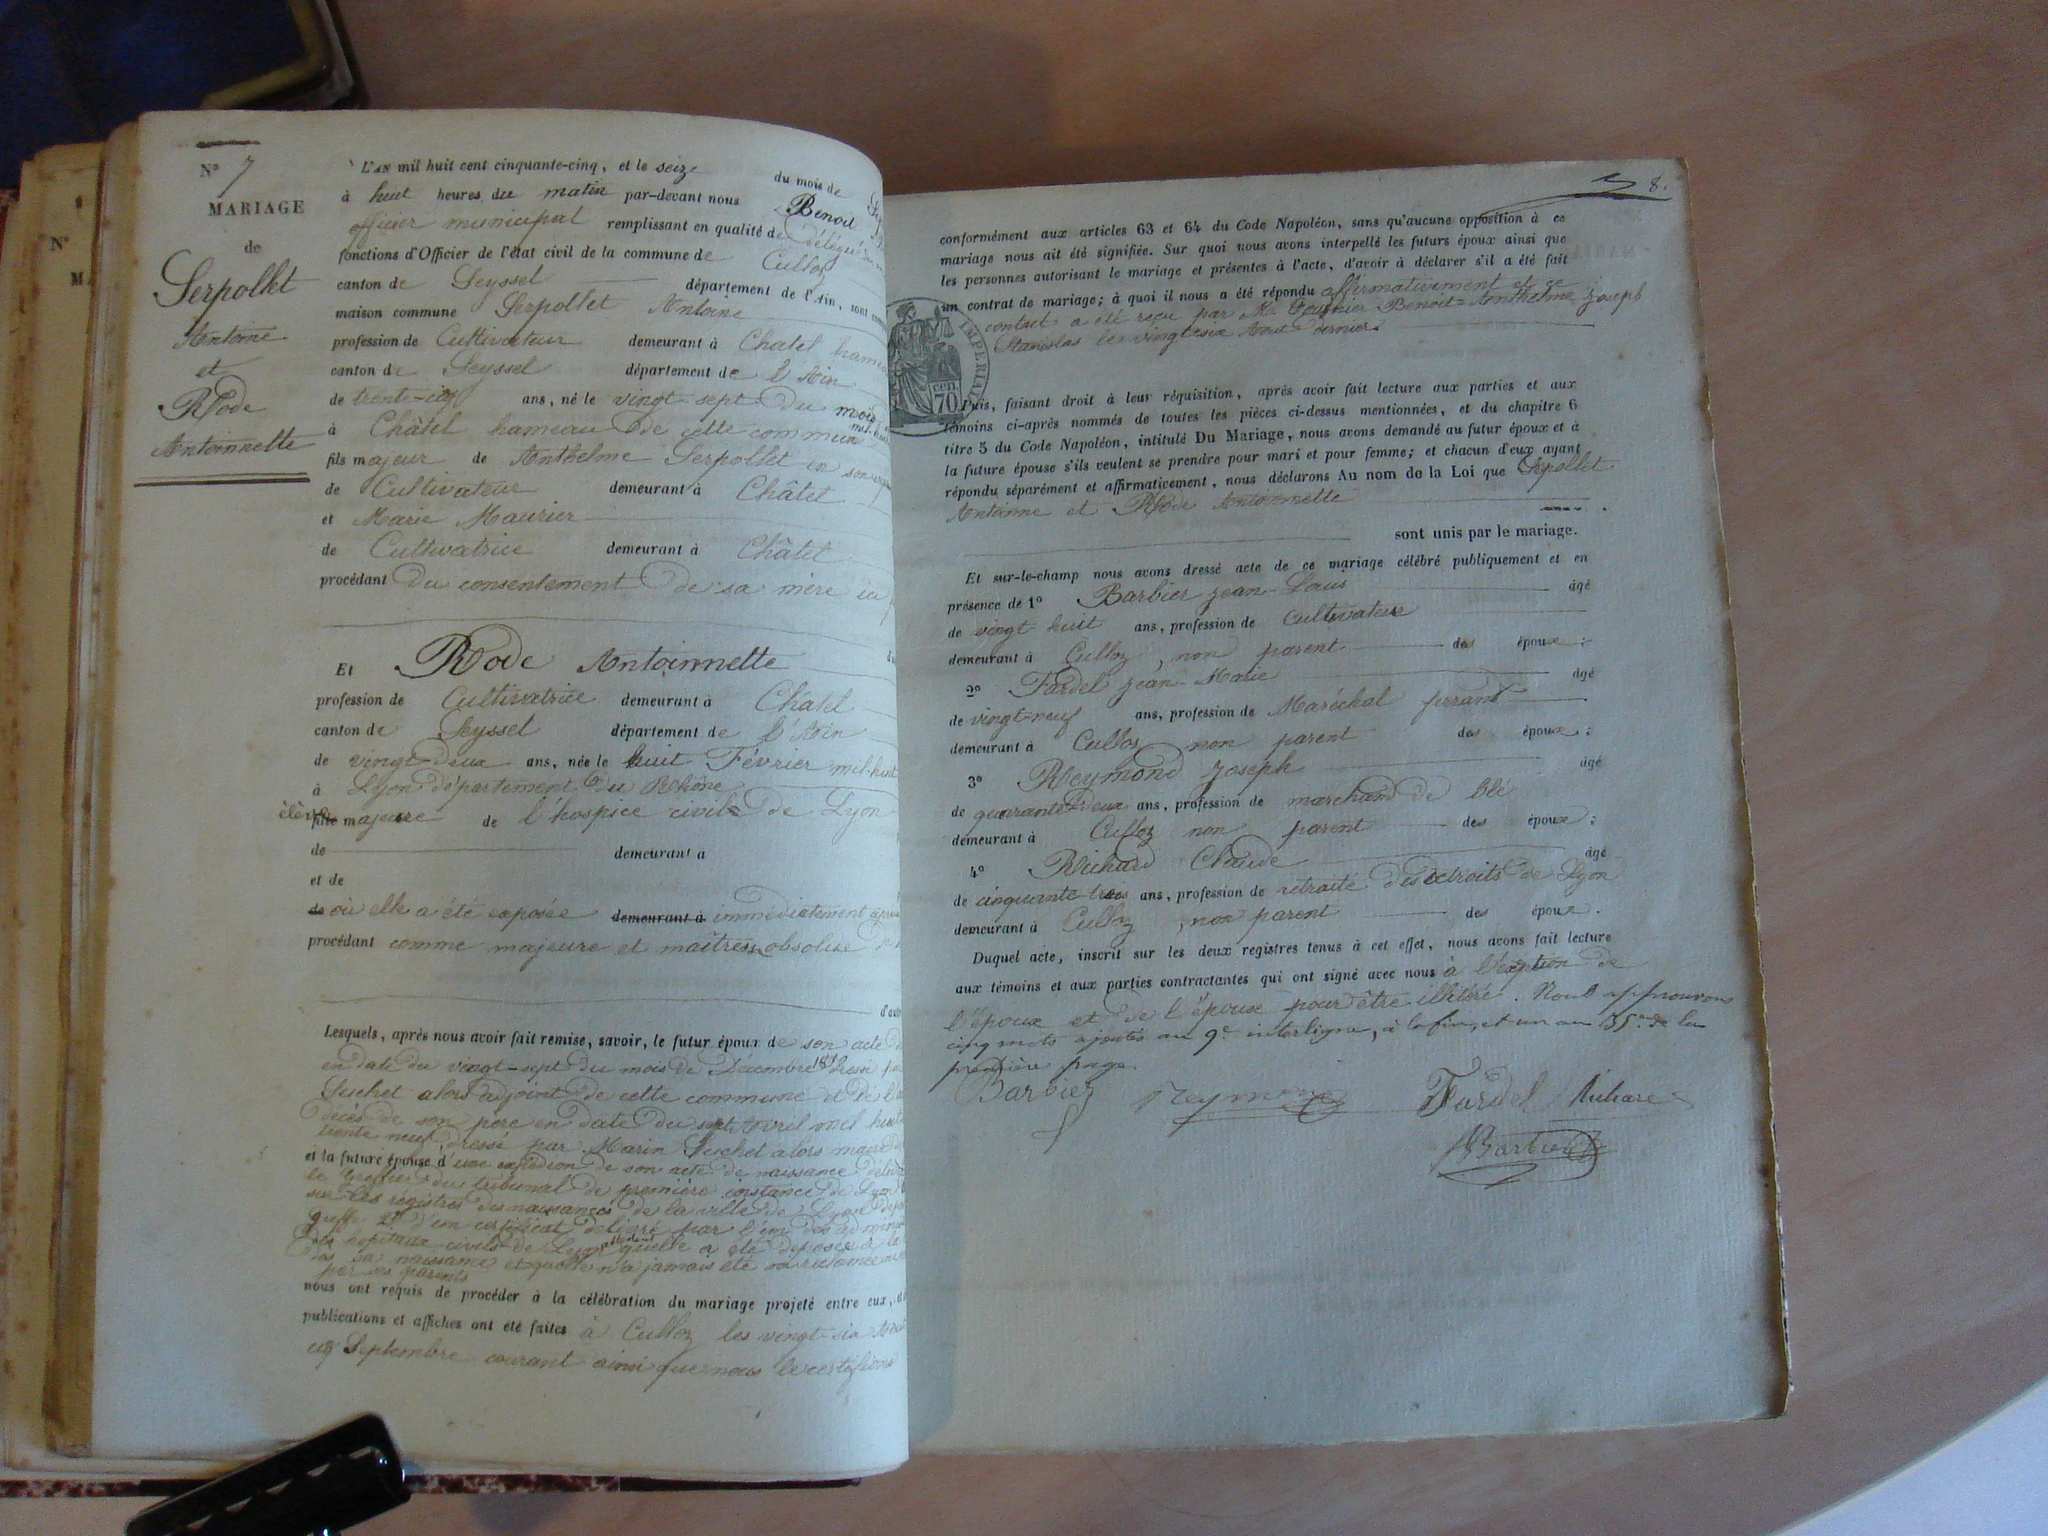 Nº 7
MARIAGE
de
Serpollet
Antoine
et
Rode
Antoinnette
L'AN mil huit cent cinquante-cinq, et le seize du mois de
à huit heures du matin par-devant nous Benoit
officier municipal remplissant en qualité de délégué
fonctions d'Officier de l'état civil de la commune de Culloz
canton de Seyssel département de l'Ain, sont
maison commune Serpollet Antoine
profession de Cultivateur demeurant à Chatel hameau
canton de Seyssel département de l'Ain
de trente-cinq ans, né le vingt-sept du mois
à Châtel hameau de cette commune mil-huit
fils majeur de Anthelme Serpollet en son
de Cultivateur demeurant à Châtel
et Marie Maurier
de Cultivatrice demeurant à Châtel
procédant du consentement de sa mère ici
Et Rode Antoinnette
profession de Cultivatrice demeurant à Chatel
canton de Seyssel département de l'Ain
de vingt-deux ans, née le huit Février mil-huit
à Lyon département du Rhône
élève fille majeure de l'hospice civil de Lyon
de demeurant à
et de
de où elle a été exposée demeurant à immédiatement
procédant comme majeure et maîtresse absolue
Lesquels, après nous avoir fait remise, savoir, le futur époux de son acte
en date du vingt-sept du mois de Décembre dressé
Suchet alors adjoint de cette commune et de
décès de son père en date du sept Avril mil huit
trente neuf dressé par Marin Suchet alors maire
et la future épouse d'une expédition de son acte de naissance
le greffier du tribunal de première instance de Lyon
sur les registres des naissances de la ville de Lyon
greffe 2° d'un certificat délivré par l'un des
des hopitaux civils de Lyon qu'elle a été déposée à la
sa naissance et qu'elle n'a jamais été
par ses parents
nous ont requis de procéder à la célébration du mariage projeté entre eux,
publications et affiches ont été faites à Culloz les vingt-six
Septembre courant ainsi que nous le certifions
8.
conformément aux articles 63 et 64 du Code Napoléon, sans qu'aucune opposition à ce
mariage nous ait été signifiée. Sur quoi nous avons interpellé les futurs époux ainsi que
les personnes autorisant le mariage et présentes à l'acte, d'avoir à déclarer s'il a été fait
un contrat de mariage; à quoi il nous a été répondu affirmativement et ce
contact a été reçu par Me Benoit-Anthelme Joseph
Stanislas le vingt-six Aout dernier
IMPERIAL
70 cen
Puis, faisant droit à leur réquisition, après avoir fait lecture aux parties et aux
témoins ci-après nommés de toutes les pièces ci-dessus mentionnées, et du chapitre 6
titre 5 du Code Napoléon, intitulé Du Mariage, nous avons demandé au futur époux et à
la future épouse s'ils veulent se prendre pour mari et pour femme; et chacun d'eux ayant
répondu séparément et affirmaticement, nous déclarons Au nom de la Loi que Serpollet
Antoinne et Rode Antoinnette
sont unis par le mariage.
Et sur-le-champ nous avons dressé acte de ce mariage célébré publiquement et en
présence de 1º Barbier Jean-Louis âgé
de vingt-huit ans, profession de Cultivateur
demeurant à Culloz, non parent des époux:
2º Fardel Jean-Marie âgé
de vingt-neuf ans, profession de Maréchal ferrant
demeurant à Culloz non parent des époux:
3º Reymond Joseph âgé
de quarante-deux ans, profession de marchand de blé
demeurant à Culloz non parent des époux:
4º Richard Claude âgé
de cinquante trois ans, profession de retraité des octroits de Lyon
demeurant à Culloz, non parent des époux.
Duquel acte, inscrit sur les deux registres tenus à cet effet, nous avons fait lecture
aux témoins et aux parties contractantes qui ont signé avec nous à l'éxeption de
l'époux et de l'épouse pour être illétéré. Nous approuvons
cinq mots ajoutés au 9e interligne, à la fin, et un au 35me de la
première page.
Barbier Reymond Fardel Richard
Barbier